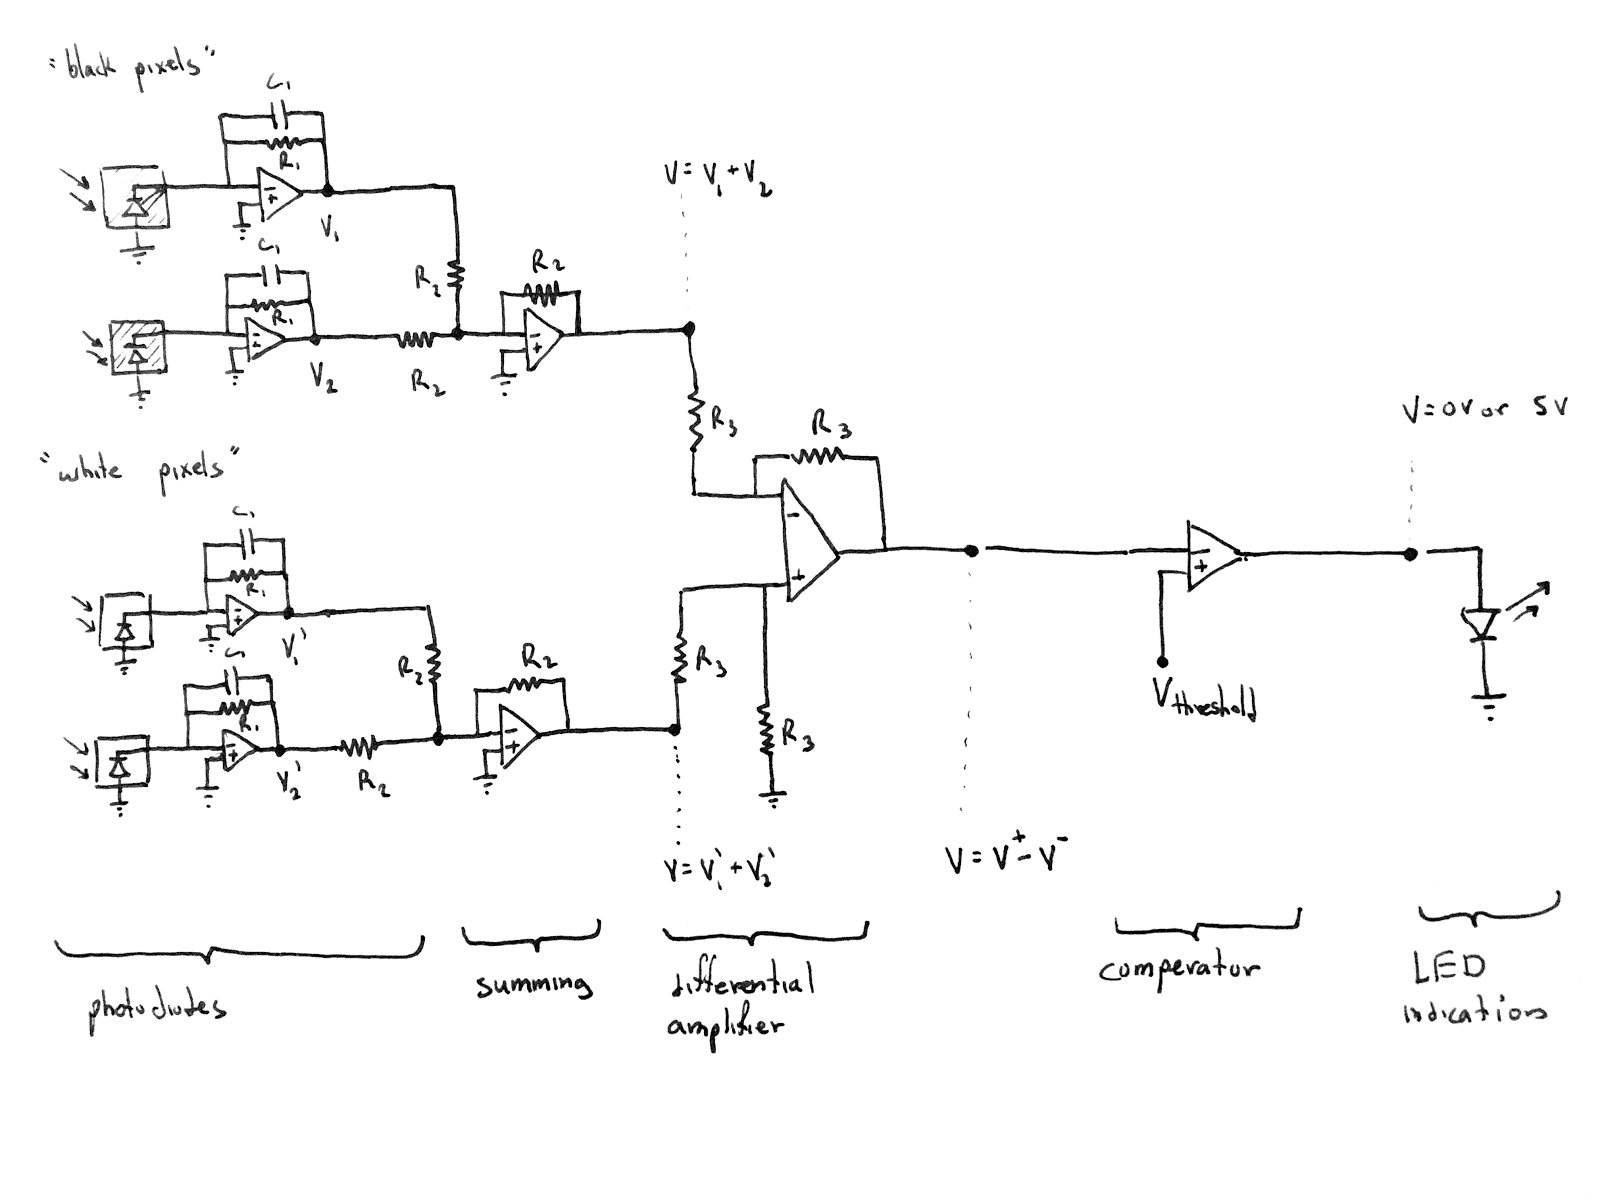 "black pixels"
C₁
R₁
V₁
C₁
R₁
V₂
R₂
R₂
R₂
V = V₁ + V₂
R₃
R₃
V = 0V or 5V
"white pixels"
C₁
R₁
V₁'
C₁
R₁
V₂'
R₂
R₂
R₂
R₃
R₃
Vthreshold
V = V₁' + V₂'
V = V⁺ - V⁻
photodiodes
summing
differential
amplifier
comperator
LED
indications